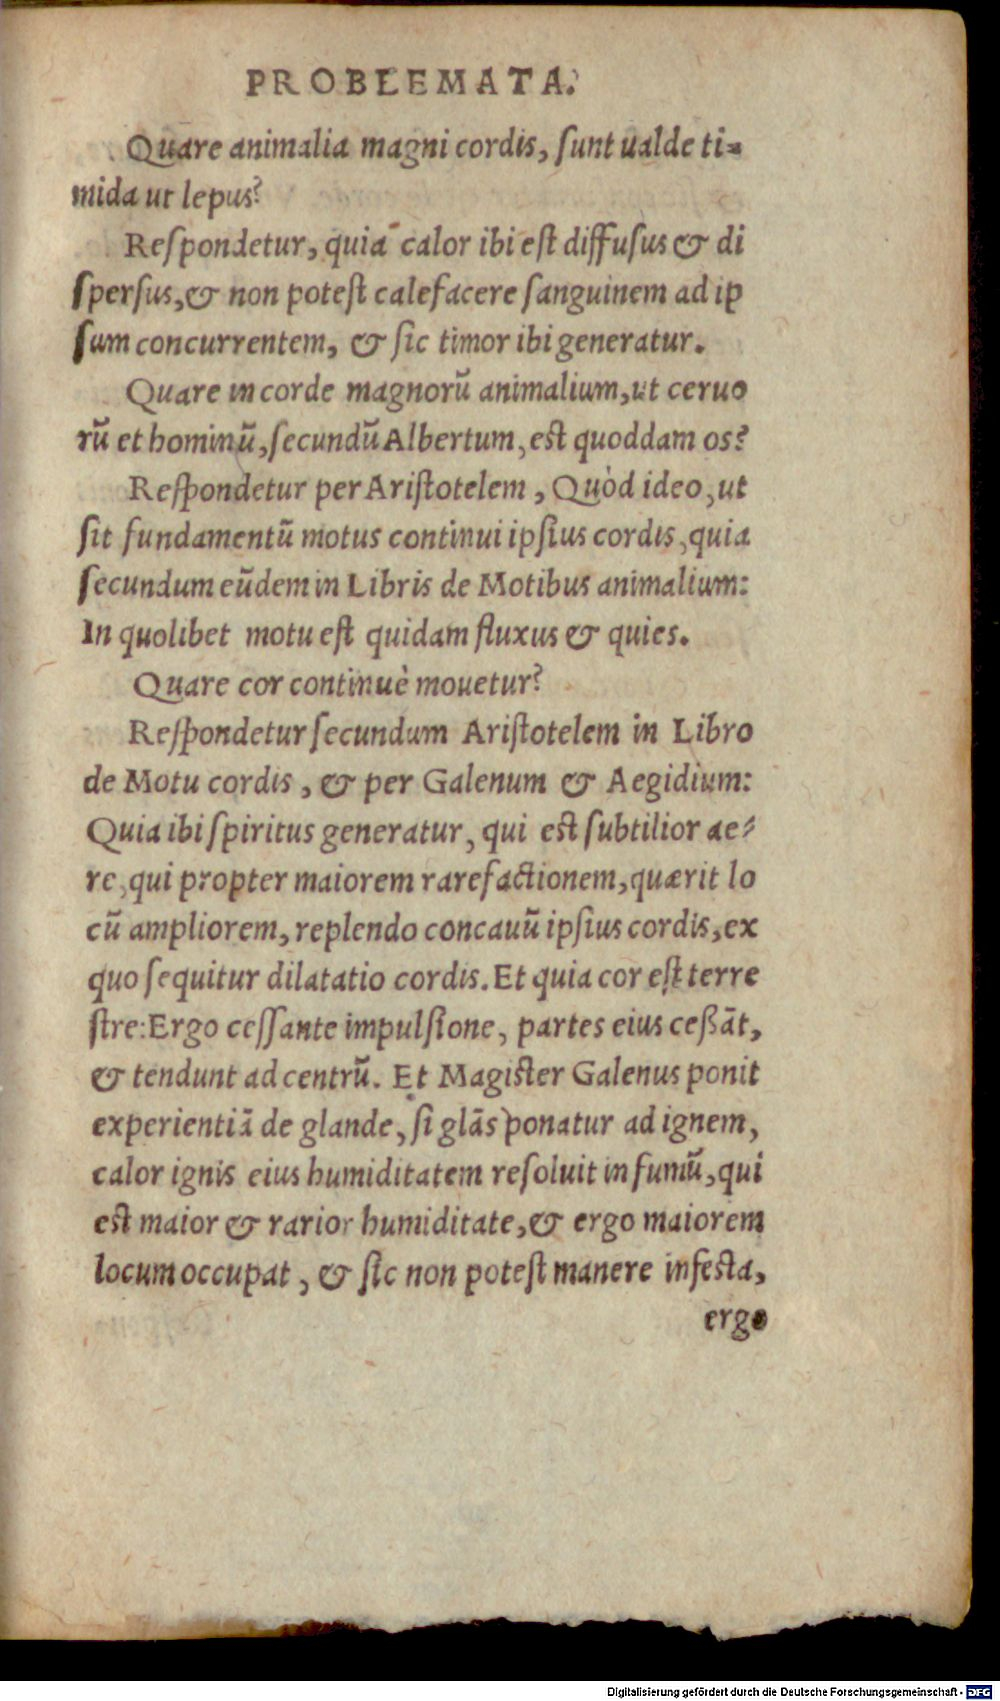 PROBLEMATA.
Quare animalia magni cordis, ſunt ualde ti-
mida ut lepus?
Reſpondetur, quia calor ibi eſt diffuſus & di
ſperſus, & non poteſt calefacere ſanguinem ad ip
ſum concurrentem, & ſic timor ibi generatur.
Quare in corde magnorũ animalium, ut ceruo
rũ et hominũ, ſecundũ Albertum, eſt quoddam os?
Reſpondetur per Ariſtotelem, Quòd ideo, ut
ſit fundamentũ motus continui ipſius cordis, quia
ſecundum eũdem in Libris de Motibus animalium:
In quolibet motu eſt quidam fluxus & quies.
Quare cor continuè mouetur?
Reſpondetur ſecundum Ariſtotelem in Libro
de Motu cordis, & per Galenum & Aegidium:
Quia ibi ſpiritus generatur, qui eſt ſubtilior ae-
re, qui propter maiorem rarefactionem, quærit lo
cũ ampliorem, replendo concauũ ipſius cordis, ex
quo ſequitur dilatatio cordis. Et quia cor eſt terre
ſtre: Ergo ceſſante impulſione, partes eius ceßãt,
& tendunt ad centrũ. Et Magiſter Galenus ponit
experientiã de glande, ſi glãs ponatur ad ignem,
calor ignis eius humiditatem reſoluit in fumũ, qui
eſt maior & rarior humiditate, & ergo maiorem
locum occupat, & ſic non poteſt manere infecta,
ergo
Digitalisierung gefördert durch die Deutsche Forschungsgemeinschaft - DFG